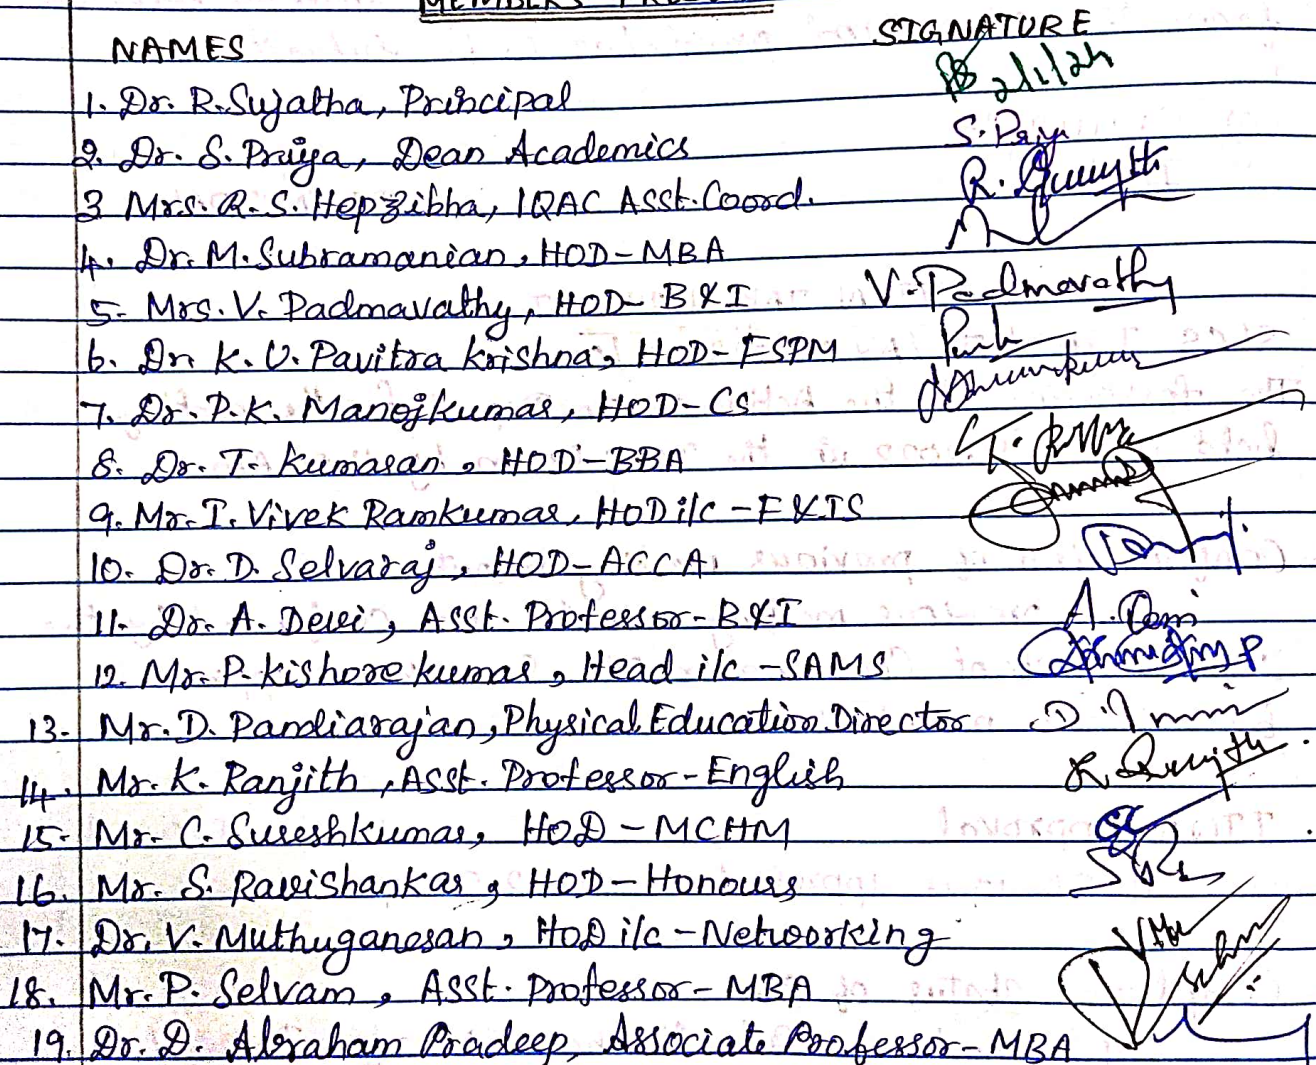 MEMBERS
NAMES SIGNATURE
1. Dr. R. Sujatha, Principal 2/1/24
2. Dr. S. Priya, Dean Academics S. Priya
3 Mrs. R. S. Hepzibha, IQAC Asst. Coord. R.
4. Dr. M. Subramanian, HOD-MBA
5. Mrs. V. Padmavathy, HOD- B&I V. Padmavathy
6. Dr. K. U. Pavitra Krishna, HOD-FSPM
7. Dr. P. K. Manojkumar, HOD-CS
8. Dr. T. Kumaran, HOD-BBA
9. Mr. I. Vivek Ramkumar, HOD i/c - F&IS
10. Dr. D. Selvaraj, HOD-ACCA
11. Dr. A. Devi, Asst. Professor-B&I A. Devi
12. Mr. P. Kishore kumar, Head i/c -SAMS
13. Mr. D. Pandiarajan, Physical Education Director D.
14. Mr. K. Ranjith, Asst. Professor-English K. Ranjith
15. Mr. C. Sureshkumar, HOD - MCHM
16. Mr. S. Ravishankar, HOD-Honours
17. Dr. V. Muthuganesan, HOD i/c -Networking
18. Mr. P. Selvam, Asst. Professor-MBA
19. Dr. D. Abraham Pradeep, Associate Professor-MBA